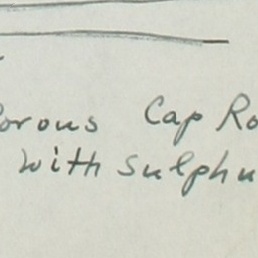 orous Cap Ro
with sulphu